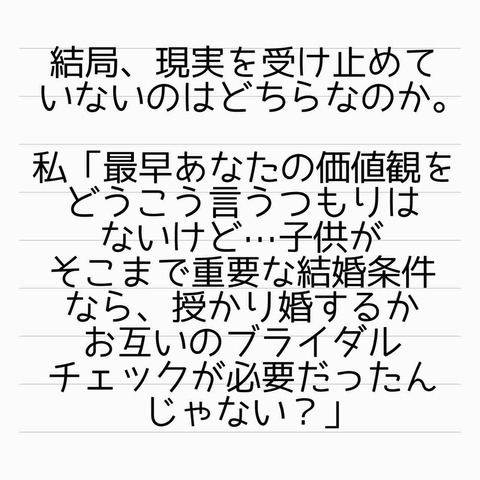 結局、現実を受け止めて
いないのはどちらなのか。
私「最早あなたの価値観を
どうこう言うつもりは
ないけど…子供が
そこまで重要な結婚条件
なら、授かり婚するか
お互いのブライダル
チェックが必要だったん
じゃない？」